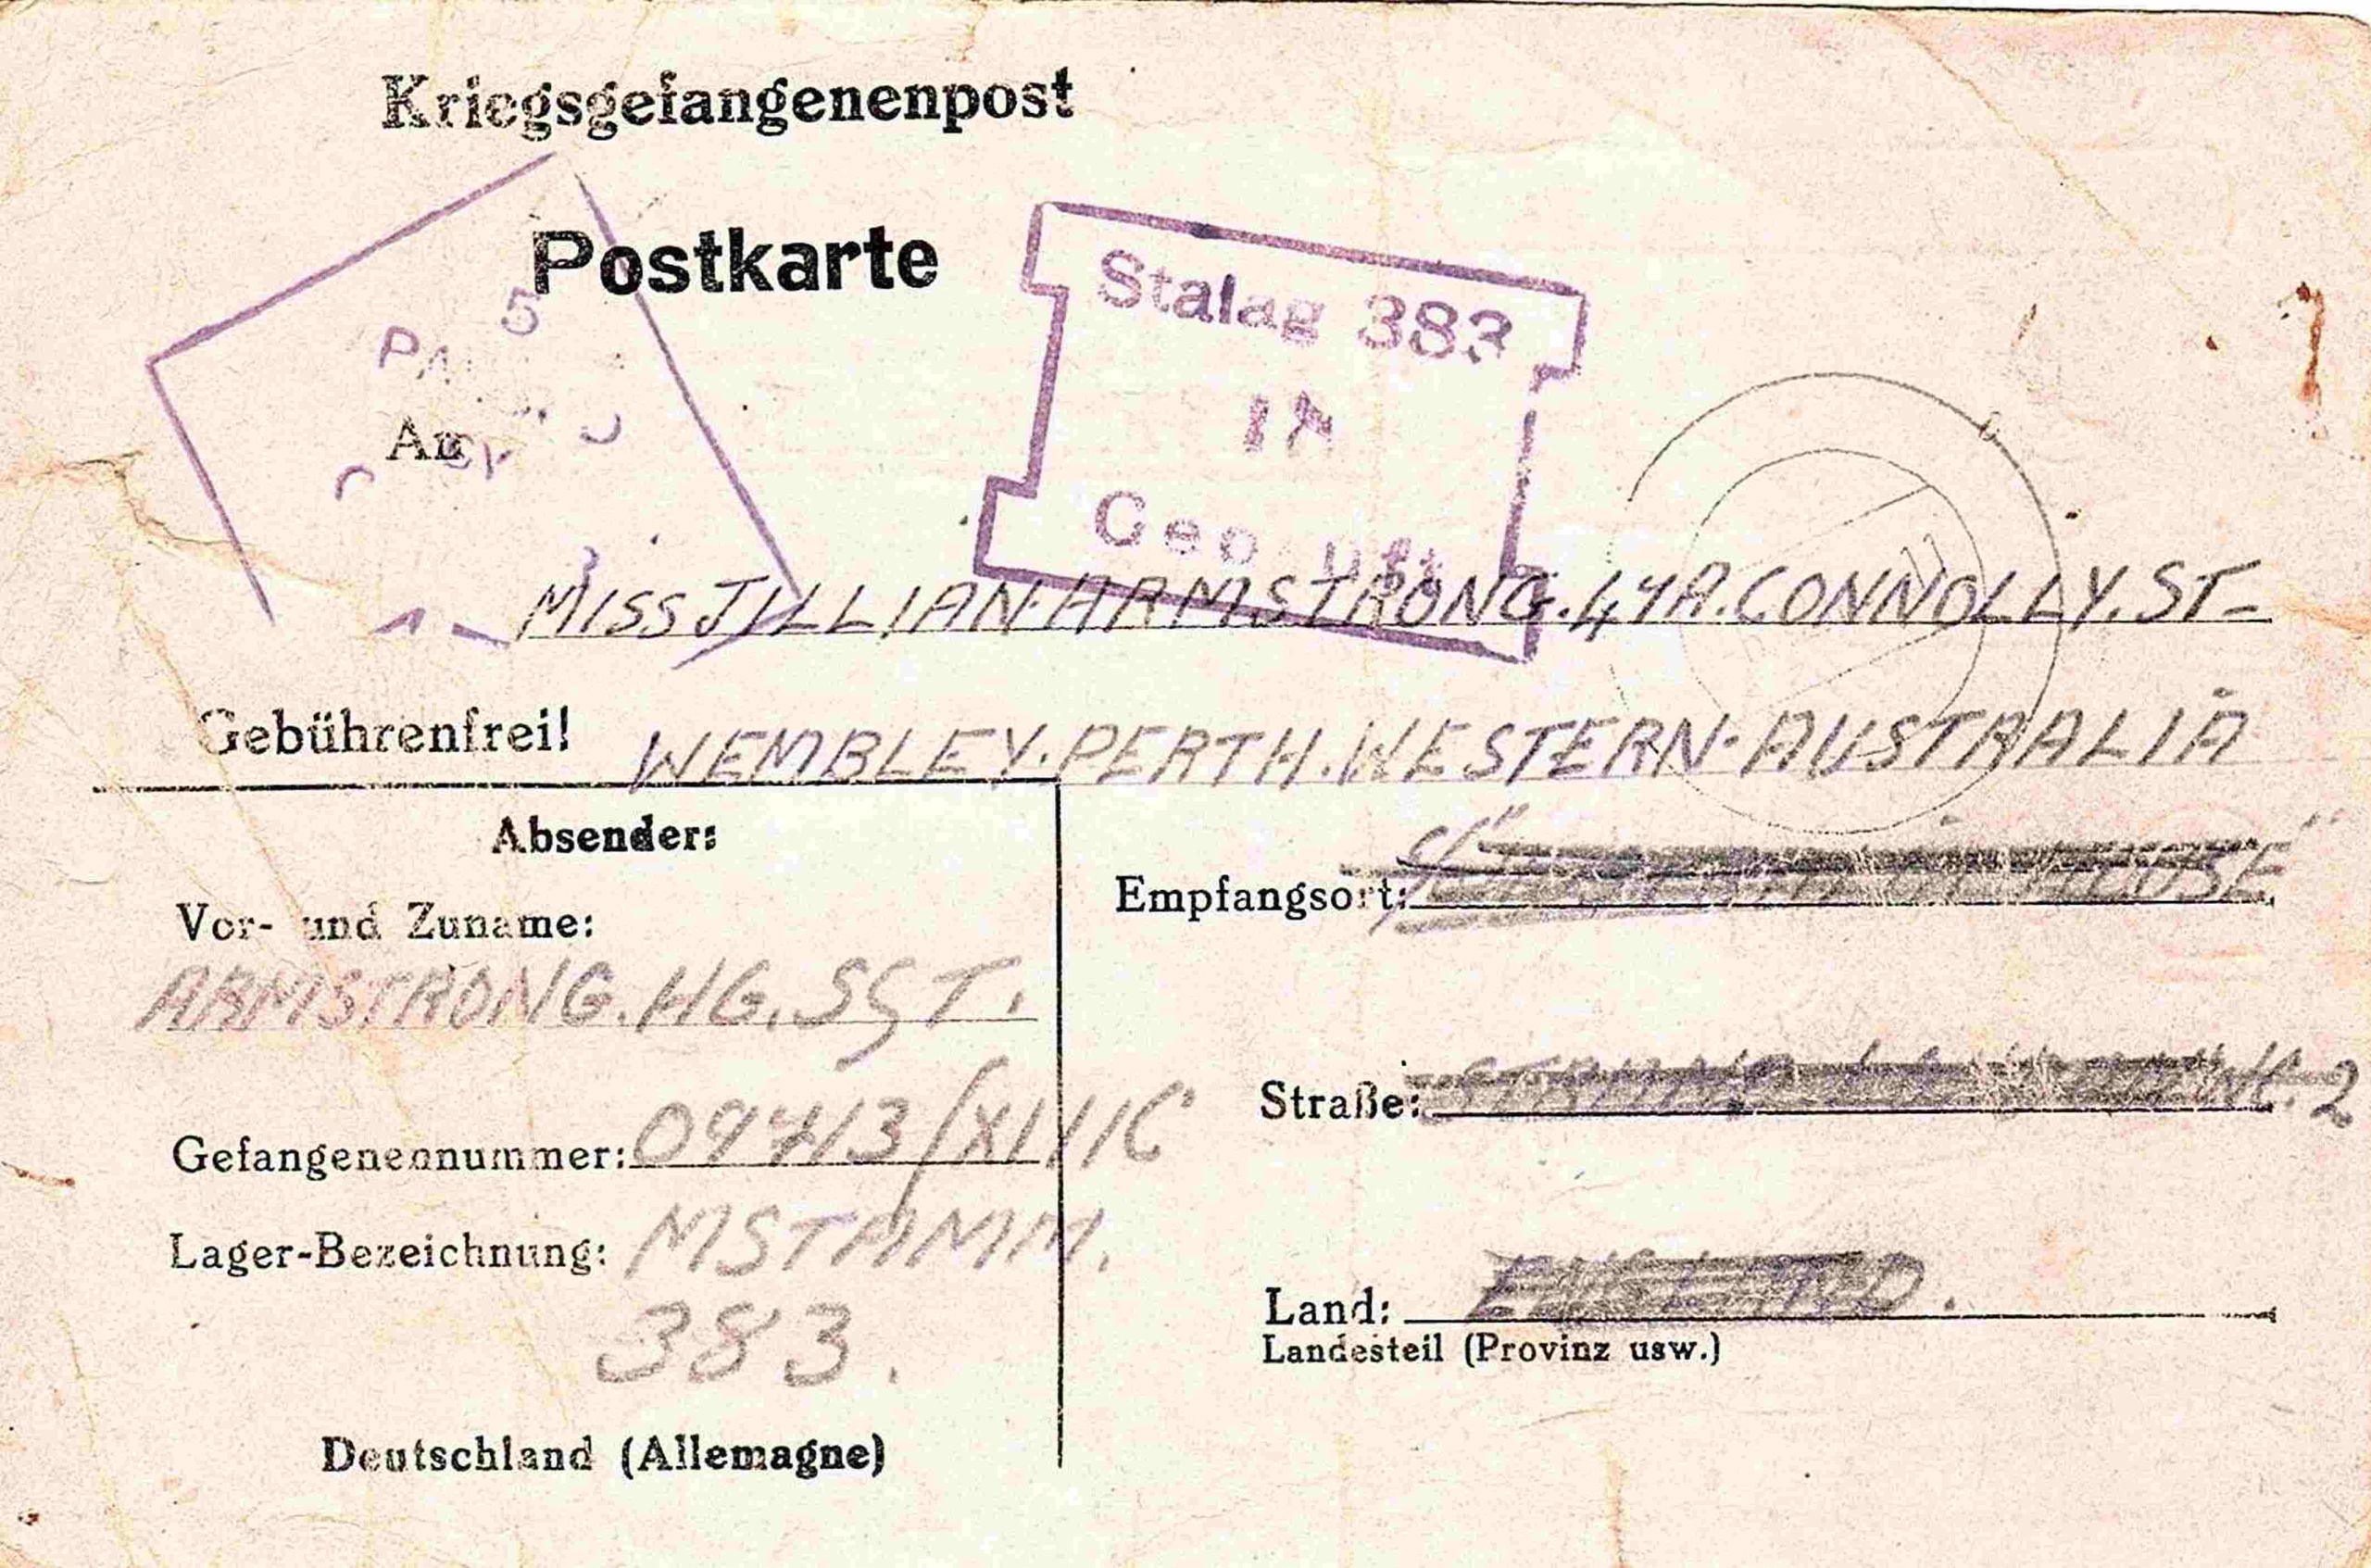 Kriegsgefangenenpost
Postkarte
5
An
Stalag 383
Geprüft
MISS JILLIAN. ARMSTRONG. 44A. CONNOLLY. ST-
Gebührenfrei!
WEMBLEY. PERTH. WESTERN. AUSTRALIA
Absender:
Vor- und Zuname:
ARMSTRONG. HG. SGT.
Gefangenennummer:
Lager-Bezeichnung: MSTAMM.
383.
Deutschland (Allemagne)
Empfangsort: HOUSE
Straße: STRAND 2
Land: ENGLAND.
Landesteil (Provinz usw.)